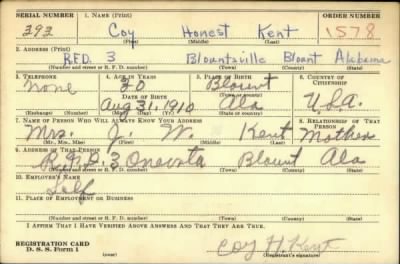 SERIAL NUMBER 1. NAME (Print) ORDER NUMBER
393 Coy Honest Kent 1578
(First) (Middle) (Last)
2. ADDRESS (Print)
R.F.D. 3 Blountsville Blount Alabama
(Number and street or R. F. D. number) (Town) (County) (State)
3. TELEPHONE 4. AGE IN YEARS 5. PLACE OF BIRTH 6. COUNTRY OF CITIZENSHIP
None 30 Blount
DATE OF BIRTH
Aug 31, 1910 Ala U.S.A.
(Exchange) (Number) (Mo.) (Day) (Yr.) (State or country)
7. NAME OF PERSON WHO WILL ALWAYS KNOW YOUR ADDRESS 8. RELATIONSHIP OF THAT PERSON
Mrs. J. W. Kent Mother
(Mr., Mrs., Miss) (First) (Middle) (Last)
9. ADDRESS OF THAT PERSON
R.F.D. 3 Oneonta Blount Ala
(Number and street or R. F. D. number) (Town) (County) (State)
10. EMPLOYER'S NAME
Self
11. PLACE OF EMPLOYMENT OR BUSINESS
(Number and street or R. F. D. number) (Town) (County) (State)
I AFFIRM THAT I HAVE VERIFIED ABOVE ANSWERS AND THAT THEY ARE TRUE.
REGISTRATION CARD
D. S. S. Form 1
Coy H. Kent
(Registrant's signature)